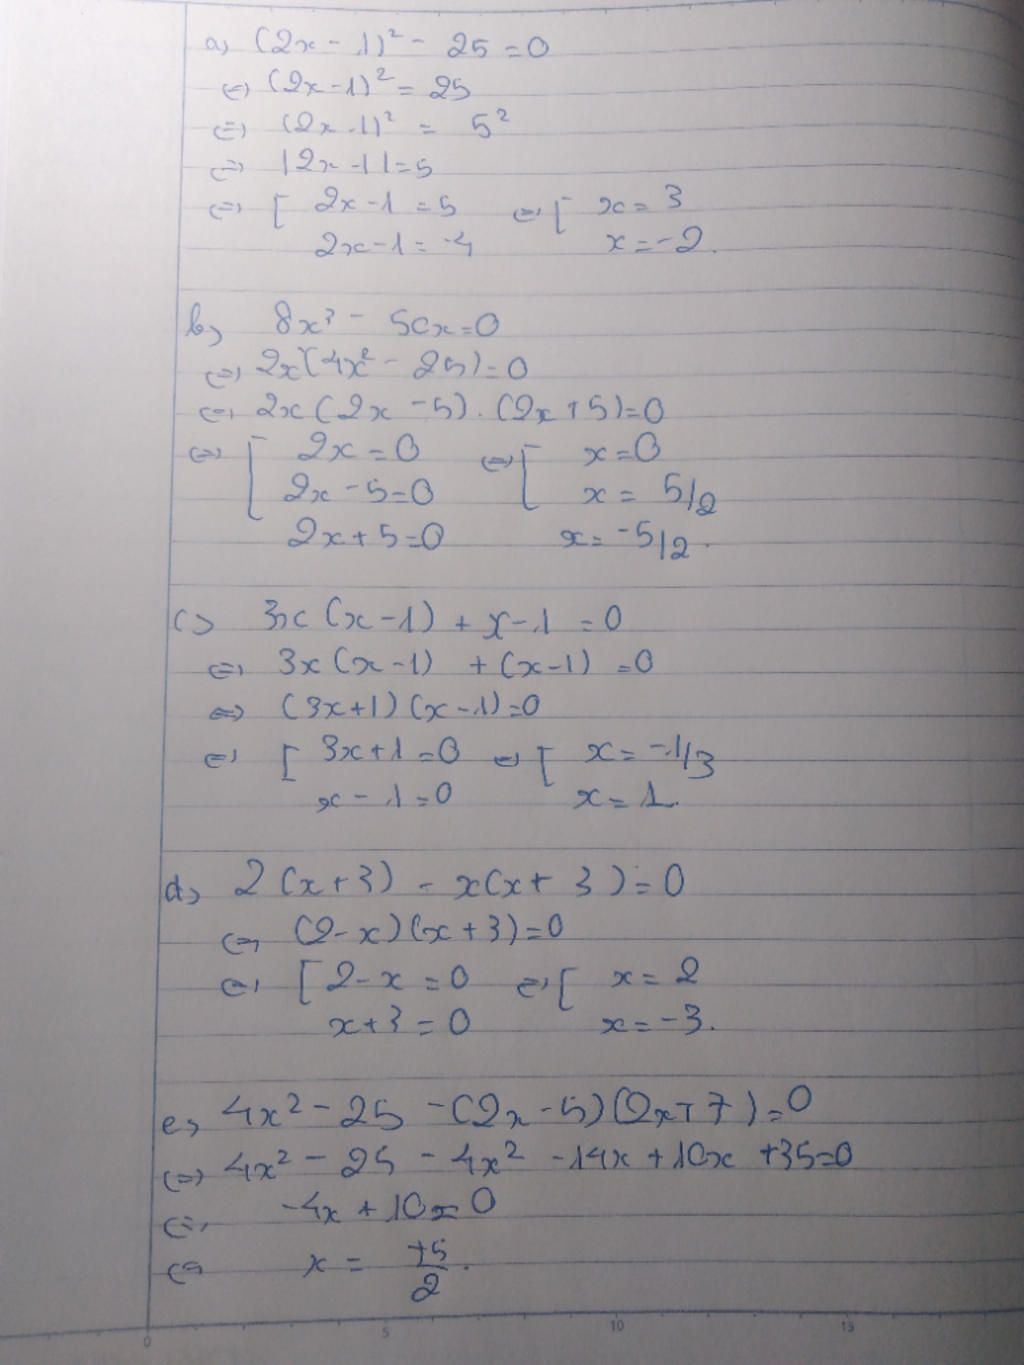 a) (2x - 1)² - 25 = 0
⇔ (2x - 1)² = 25
⇔ (2x - 1)² = 5²
⇔ |2x - 1| = 5
⇔ [ 2x - 1 = 5 ⇔ [ x = 3
2x - 1 = -4 x = -2.
b) 8x³ - 50x = 0
⇔ 2x(4x² - 25) = 0
⇔ 2x(2x - 5).(2x + 5) = 0
⇔ [ 2x = 0 ⇔ [ x = 0
2x - 5 = 0 x = 5/2
2x + 5 = 0 x = -5/2.
c) 3x(x - 1) + x - 1 = 0
⇔ 3x(x - 1) + (x - 1) = 0
⇔ (3x + 1)(x - 1) = 0
⇔ [ 3x + 1 = 0 ⇔ [ x = -1/3
x - 1 = 0 x = 1.
d) 2(x + 3) - x(x + 3) = 0
⇔ (2 - x)(x + 3) = 0
⇔ [ 2 - x = 0 ⇔ [ x = 2
x + 3 = 0 x = -3.
e) 4x² - 25 - (2x - 5)(2x + 7) = 0
⇔ 4x² - 25 - 4x² - 14x + 10x + 35 = 0
⇔ -4x + 10 = 0
⇔ x = +5/2.
0 5 10 15